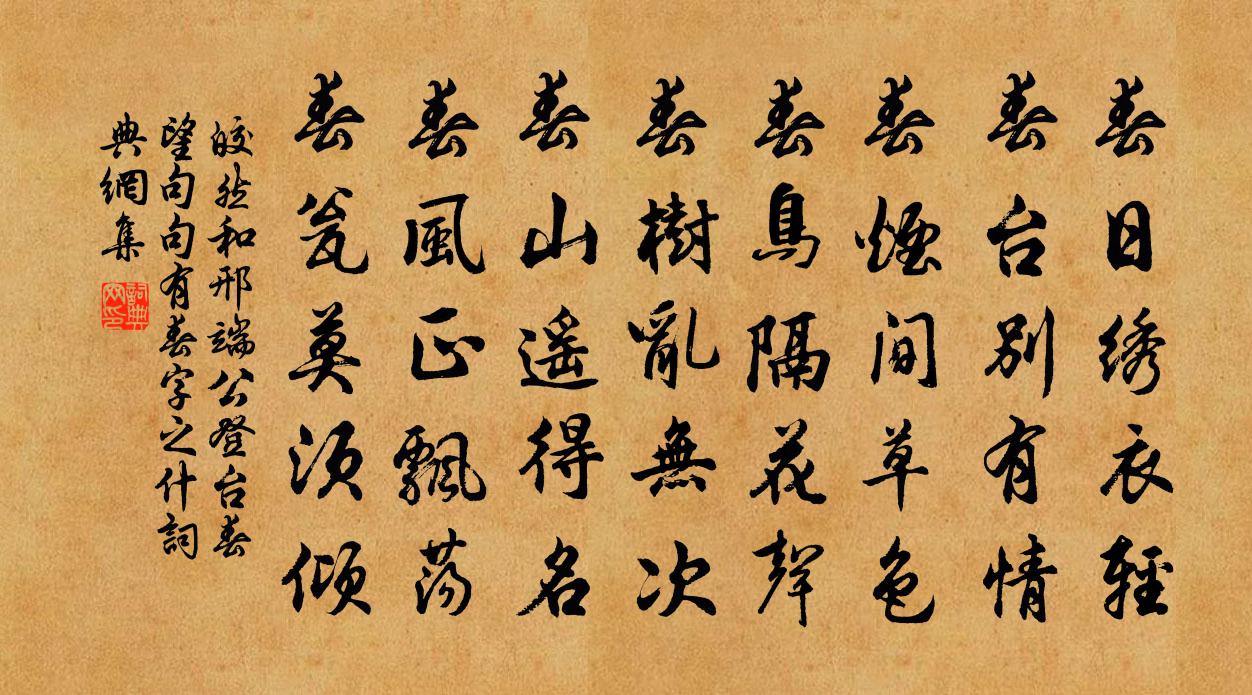 春日綉衣輕
春台別有情
春煙間草色
春鳥隔花聲
春樹亂無次
春山遥得名
春風正飄蕩
春瓮莫須傾
皎然和邢端公登台春
望句句有春字之什詞
典網集
詞典網印